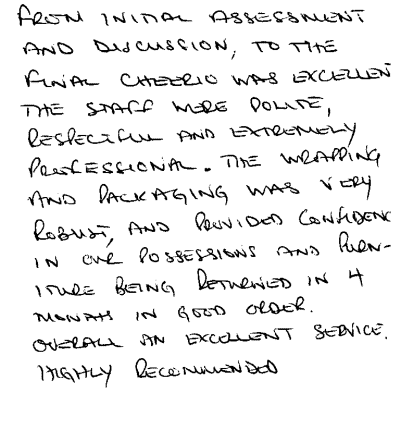 FROM INITIAL ASSESSMENT
AND DISCUSSION, TO THE
FINAL CHEERIO WAS EXCELLEN
THE STAFF WERE POLITE,
RESPECTFUL AND EXTREMELY
PROFESSIONAL. THE WRAPPING
AND PACKAGING WAS VERY
ROBUST, AND PROVIDED CONFIDENC
IN OUR POSSESSIONS AND FURN-
ITURE BEING RETURNED IN 4
MONTHS IN GOOD ORDER.
OVERALL AN EXCELLENT SERVICE.
HIGHLY RECOMMENDED